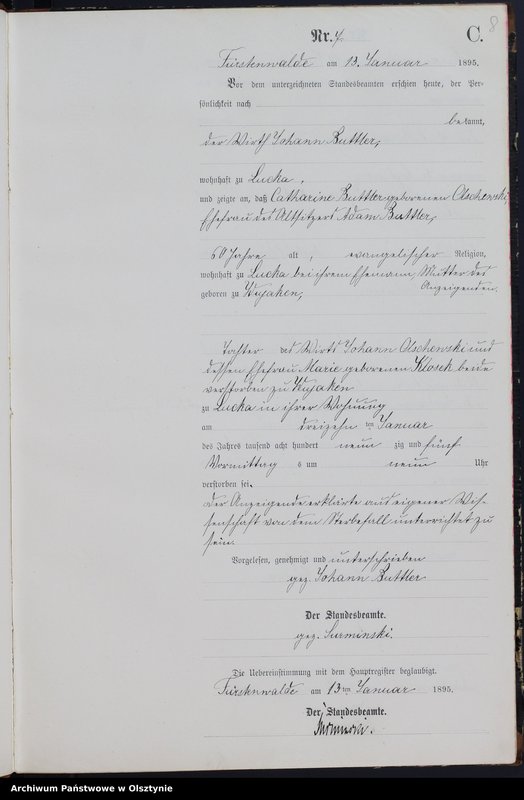 8
Nr. 4.
C.
Fürstenwalde am 13. Januar 1895.
Vor dem unterzeichneten Standesbeamten erschien heute, der Per-
sönlichkeit nach
bekannt,
der Wirth Johann Buttler,
wohnhaft zu Lucka,
und zeigte an, daß Catharine Buttler geborenen Olschewski,
Ehefrau des Altsitzers Adam Buttler,
60 Jahre alt, evangelischer Religion,
wohnhaft zu Lucka bei ihrem Ehemann, Mutter des
Anzeigenden.
geboren zu Wujaken,
Tochter des Wirts Johann Olschewski und
dessen Ehefrau Marie geborenen Klosek beide
verstorben zu Wujaken
zu Lucka in ihrer Wohnung
am dreizehn ten Januar
des Jahres tausend acht hundert neun zig und fünf
Vormittag s um neun Uhr
verstorben sei.
Der Anzeigende erklärte aus eigener Wis-
senschaft von dem Sterbefall unterrichtet zu
sein.
Vorgelesen, genehmigt und unterschrieben
gez. Johann Buttler
Der Standesbeamte.
gez. Surminski.
Die Uebereinstimmung mit dem Hauptregister beglaubigt.
Fürstenwalde am 13ten Januar 1895.
Der Standesbeamte.
Surminski.
Archiwum Państwowe w Olsztynie